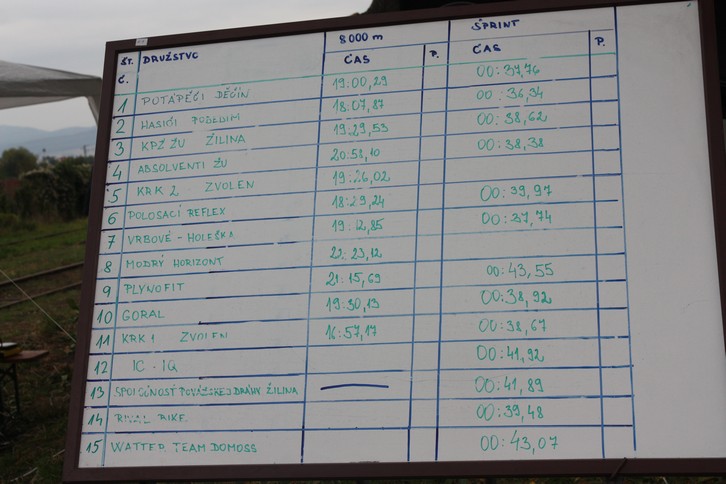 8000 m ŠPRINT
ŠT. Č. DRUŽSTVO ČAS P. ČAS P.
1 POTÁPĚČI DĚČÍN 19:00,29 00:37,76
2 HASIČI 18:07,87 00:36,34
3 KPŽ ŽU ŽILINA 19:29,53 00:38,62
4 ABSOLVENTI ŽU 20:58,10 00:38,38
5 KRK 2 ZVOLEN 19:26,02
6 POLOSACI REFLEX 18:29,24 00:39,97
7 VRBOVÉ - HOLEŠKA 19:12,85 00:37,74
8 MODRÝ HORIZONT 22:23,12
9 PLYNOFIT 21:15,69 00:43,55
10 GORAL 19:30,13 00:38,92
11 KRK 1 ZVOLEN 16:57,17 00:38,67
12 IC - IQ 00:41,92
13 POVAŽSKEJ DRÁHY ŽILINA — 00:41,89
14 BIKE 00:39,48
15 WATTER TEAM DOMOSS 00:43,07